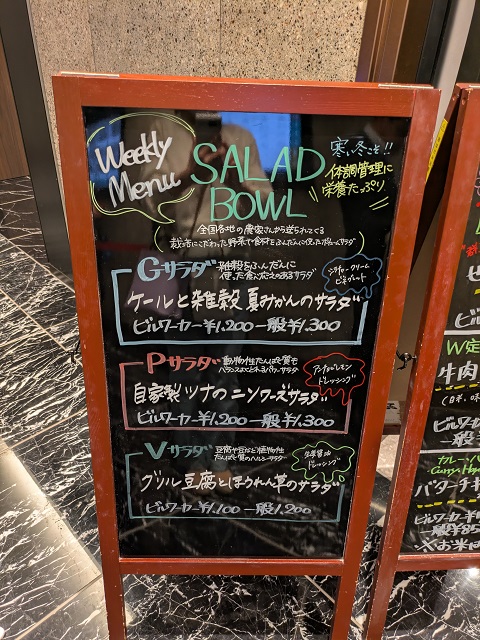 Weekly
Menu
SALAD
BOWL
寒い冬こそ!!
体調管理に
栄養たっぷり
全国各地の農家さんから送られてくる
栽培にこだわった野菜で食材をふんだんに使ったボリュームサラダ
Gサラダ
雑穀をふんだんに
使った食べごたえのあるサラダ
シーザークリーム
ケールと雑穀 夏みかんのサラダ
ビルワーカー¥1,200 一般¥1,300
Pサラダ
動物性たんぱく質も
バランスよくとれるパワーサラダ
アンチョビレモン
ドレッシング
自家製ツナのニソワーズサラダ
ビルワーカー¥1,200 一般¥1,300
Vサラダ
豆腐や豆など植物性
たんぱく質のヘルシーサラダ
生姜醤油
ドレッシング
グリル豆腐とほうれん草のサラダ
ビルワーカー¥1,100 一般¥1,200
W定
牛肉
一般
カレー・バ
Curry.Hap
バターチキ
ビルワーカー¥
一般¥85
※お米は